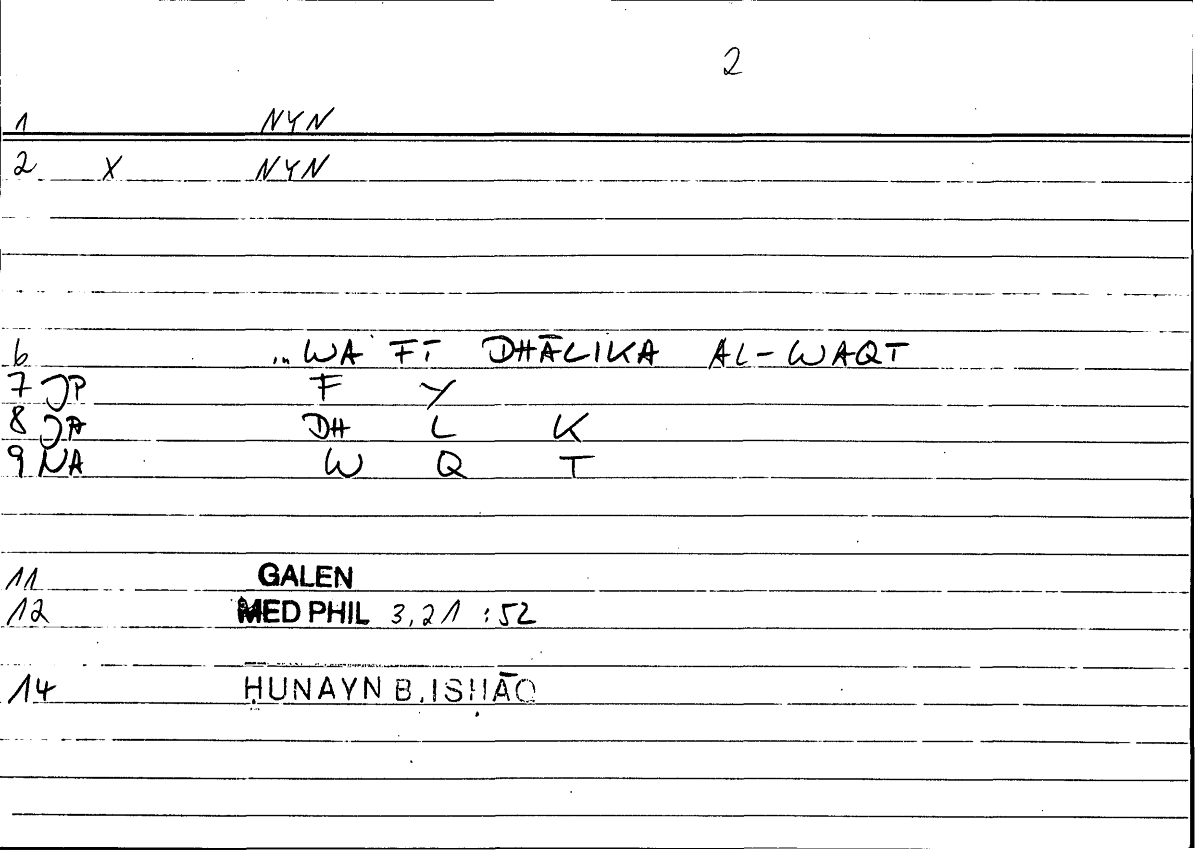 2
1 NYN
2 X NYN
6 ... WA FĪ DHĀLIKA AL-WAQT
7 JP F Y
8 JA DH L K
9 NA W Q T
11 GALEN
12 MED PHIL 3,21 :52
14 ḤUNAYN B. ISḤĀQ